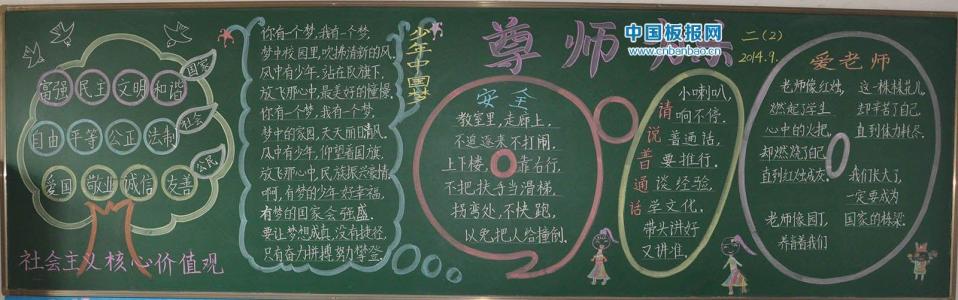 富强 民主 文明 和谐
国家
自由 平等 公正 法制
社会
爱国 敬业 诚信 友善
公民
社会主义核心价值观
少年中国梦
你有一个梦,我有一个梦,
梦中校园里,吹拂清新的风,
风中有少年,站在队旗下,
放飞那心中,最美好的憧憬,
你有一个梦,我有一个梦,
梦中的家园,天天丽日清风,
风中有少年,仰望着国旗,
放飞那心中,民族振兴豪情,
啊,有梦的少年好幸福,
有梦的国家会强盛,
要让梦想成真,没有捷径,
只有奋力拼搏努力攀登。
尊师
中国板报网
www.cnbanbao.cn
二(2)
2014.9.
安全
教室里,走廊上,
不追逐来不打闹。
上下楼,靠右行,
不把扶手当滑梯。
拐弯处,不快跑,
以免把人给撞倒。
请说普通话
小喇叭,
响不停,
普通话,
要推行。
谈经验,
学文化,
带头讲好
又讲准。
爱老师
老师像红烛,
燃起学生
心中的火把,
却燃烧了自己
直到红烛成灰。
老师像园丁,
养育着我们
这一株株花儿,
却辛苦了自己,
直到体力耗尽。
我们长大了,
一定要成为
国家的栋梁。